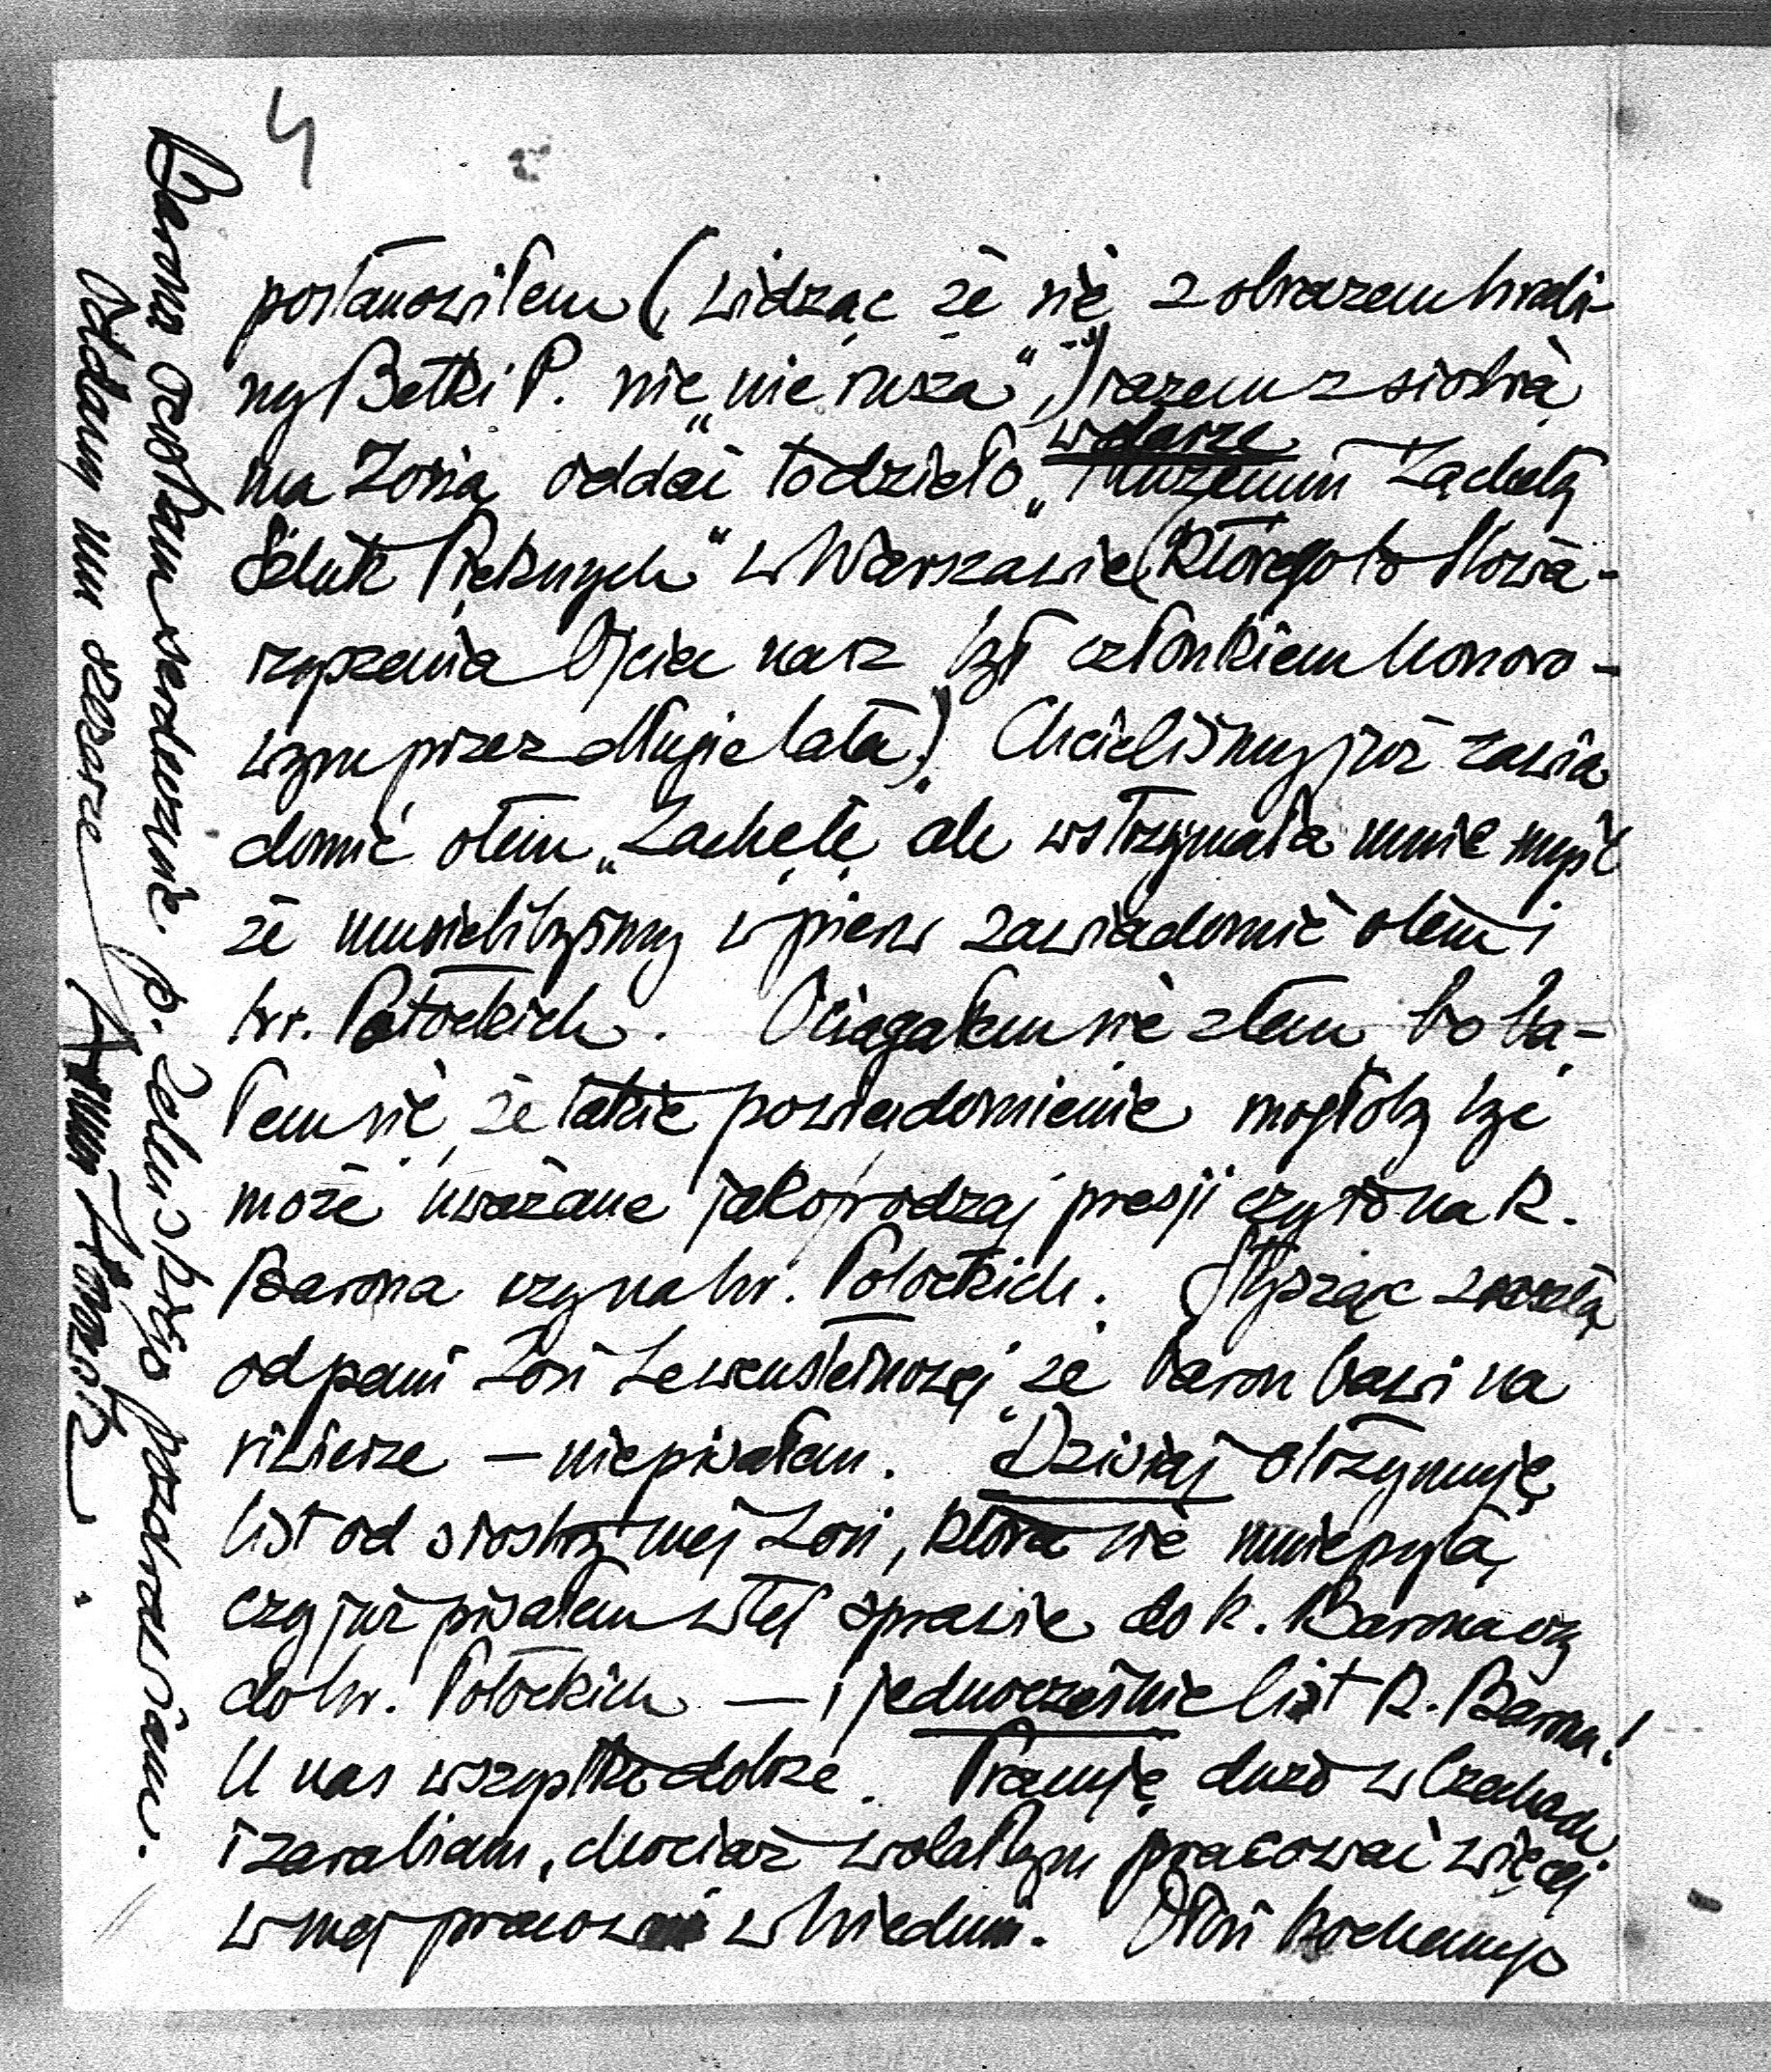 4
postanowiłem (widząc że się z obrazem hrabi-
ny Betki P. nic „nie rusza",) razem z siostrą
mą Zosią oddać to dzieło w darze „Muzeum Zachęty
Sztuk Pięknych" w Warszawie (którego to Stowa-
rzyszenia Ojciec nasz był członkiem honoro-
wym przez długie lata). Chcieliśmy już zawia
domić o tem „Zachętę" ale wstrzymała mnie myśl
że musielibyśmy wpierw zawiadomić o tem i
hr. Potockich. Ociągałem się z tem, bo ba-
łem się, że takie powiadomienie mogłoby być
może uważane jako rodzaj presji czy to na K.
Barona czy na hr. Potockich. Słysząc zresztą
od pani Zosi Lewensteinowej, że baron bawi na
rivierze — nie pisałem. Dzisiaj otrzymuję
list od siostry mej Zosi, która się mnie pyta,
czy już pisałem w tej sprawie do k. Barona czy
do hr. Potockich — i jednocześnie list K. Barona!
U nas wszystko dobrze. Pracuję dużo w Czechach
i zarabiam, chociaż wolałbym pracować więcej
w mej pracowni w Wiedniu. Dłoń kochanego
Barona ściskam serdecznie p. pozdrawiam.
Oddany mu szczerze